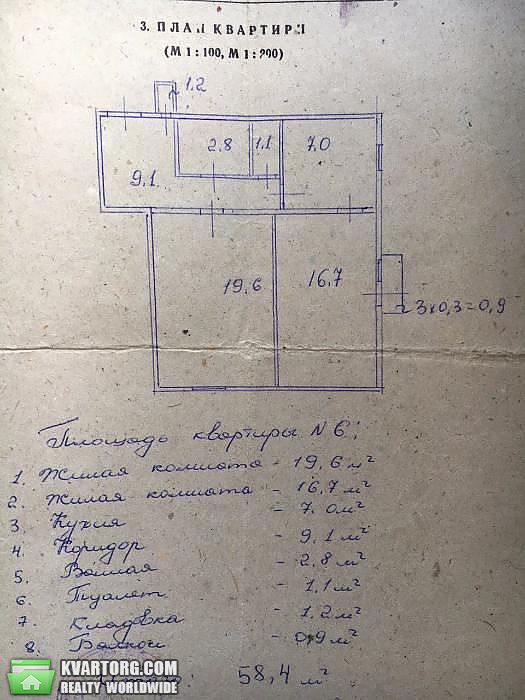 3. ПЛАН КВАРТИРИ
(М 1 : 100, М 1 : 200)
1.2
2.8
1.1
7.0
9.1
19,6
16,7
3х0,3=0,9
Площадь квартиры N 6:
1. Жилая комната - 19,6 м²
2. Жилая комната - 16,7 м²
3. Кухня - 7.0 м²
4. Коридор - 9,1 м²
5. Ванная - 2,8 м²
6. Туалет - 1,1 м²
7. Кладовка - 1,2 м²
8. Балкон - 0,9 м²
58,4 м²
KVARTORG.COM
REALTY WORLDWIDE